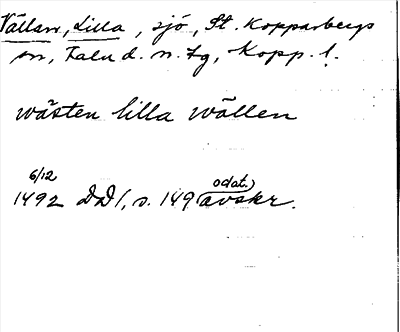 Vällan, Lilla, sjö, St. Kopparbergs
sn, Falu d. n. tg, Kopp. l.
wästen lilla wällen
6/12 odat.)
1492 DD 1, s. 149 (avskr.